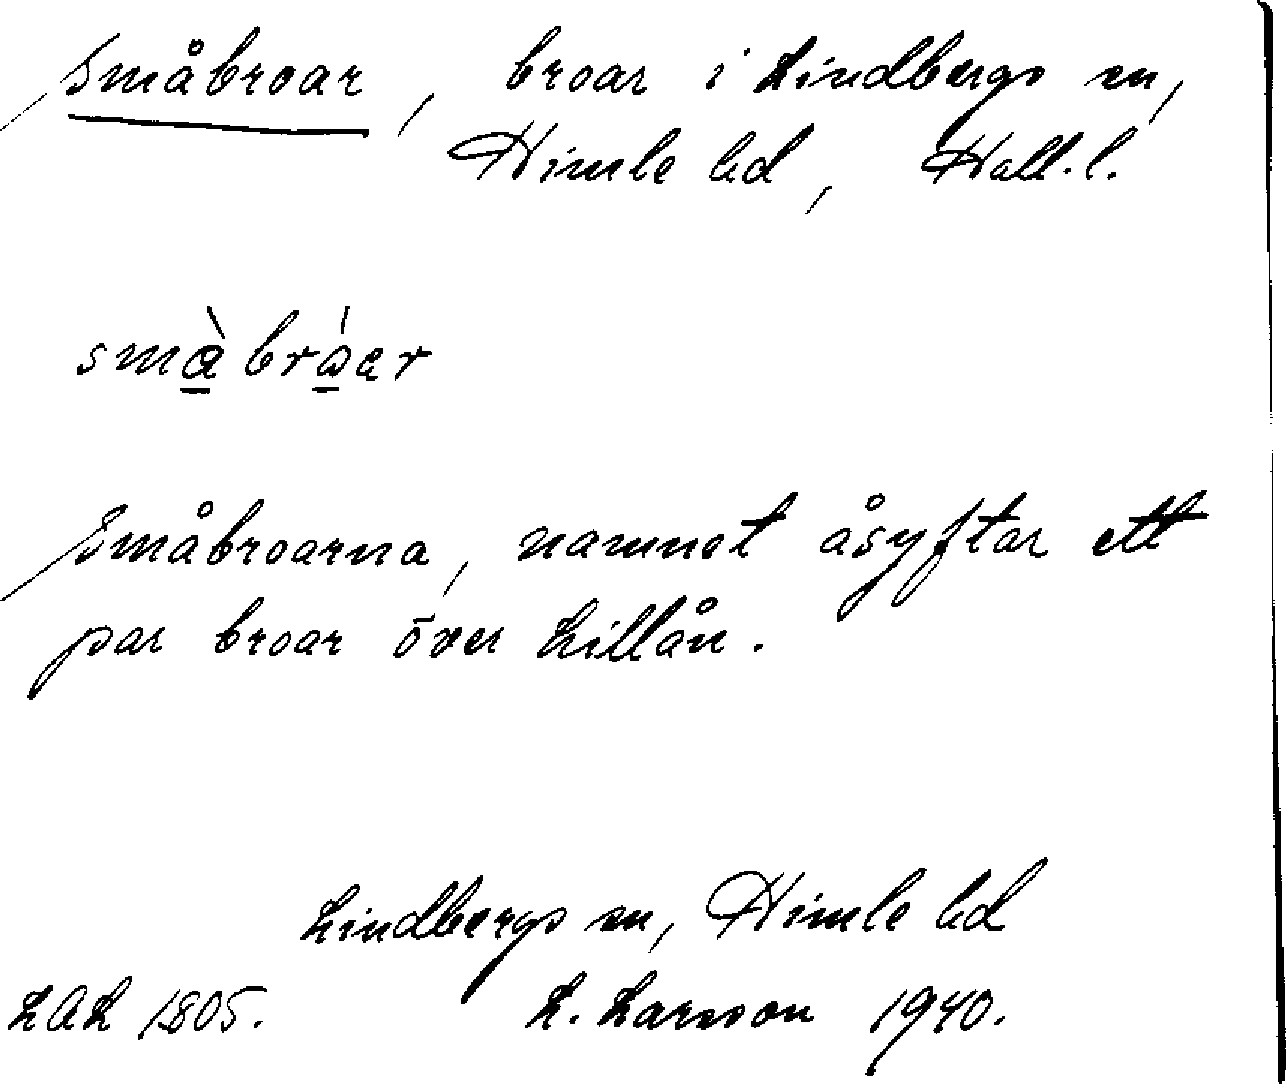 Småbroar, broar i Lindbergs sn,
Himle hd, Hall. l.
små̀ brǻer
Småbroarna, namnet åsyftar ett
par broar över Lillån.
Lindbergs sn, Himle hd
LAL 1805. L. Larsson 1940.